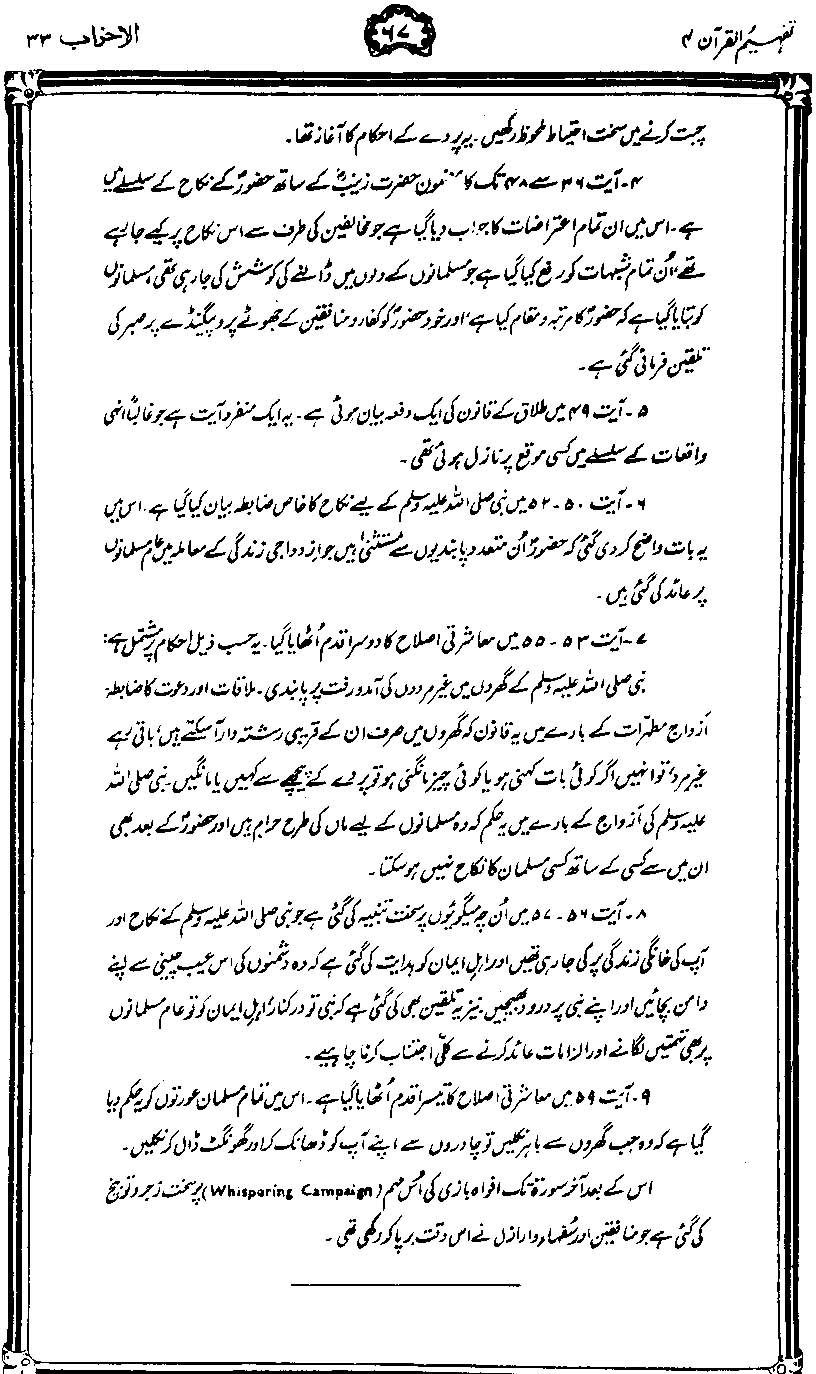 تفہیم القرآن ۴
۶۷
الاحزاب ۳۳
چیت کرنے میں سخت احتیاط ملحوظ رکھیں۔ یہ پردے کے احکام کا آغاز تھا۔
۴۔ آیت ۳۶ سے ۴۸ تک کا مضمون حضرت زینبؓ کے ساتھ حضورؐ کے نکاح کے سلسلے میں
ہے۔ اس میں ان تمام اعتراضات کا جواب دیا گیا ہے جو مخالفین کی طرف سے اس نکاح پر کیے جا رہے
تھے، اُن تمام شبہات کو رفع کیا گیا ہے جو مسلمانوں کے دلوں میں ڈالنے کی کوشش کی جا رہی تھی، مسلمانوں
کو بتایا گیا ہے کہ حضورؐ کا مرتبہ و مقام کیا ہے، اور خود حضورؐ کو کفار و منافقین کے جھوٹے پروپیگنڈے پر صبر کی
تلقین فرمائی گئی ہے۔
۵۔ آیت ۴۹ میں طلاق کے قانون کی ایک دفعہ بیان ہوئی ہے۔ یہ ایک منفرد آیت ہے جو غالباً انہی
واقعات کے سلسلے میں کسی موقع پر نازل ہوئی تھی۔
۶۔ آیت ۵۰۔۵۲ میں نبی صلی اللہ علیہ وسلم کے لیے نکاح کا خاص ضابطہ بیان کیا گیا ہے، اس میں
یہ بات واضح کر دی گئی کہ حضورؐ اُن متعدد پابندیوں سے مستثنیٰ ہیں جو ازدواجی زندگی کے معاملہ میں عام مسلمانوں
پر عائد کی گئی ہیں۔
۷۔ آیت ۵۳۔۵۵ میں معاشرتی اصلاح کا دوسرا قدم اُٹھایا گیا۔ یہ حسب ذیل احکام پر مشتمل ہے:
نبی صلی اللہ علیہ وسلم کے گھروں میں غیر مردوں کی آمدورفت پر پابندی۔ ملاقات اور دعوت کا ضابطہ۔
ازواج مطہرات کے بارے میں یہ قانون کہ گھروں میں صرف ان کے قریبی رشتہ دار آ سکتے ہیں، باقی رہے
غیر مرد، تو انہیں اگر کوئی بات کہنی ہو یا کوئی چیز مانگنی ہو تو پردے کے پیچھے سے کہیں یا مانگیں۔ نبی صلی اللہ
علیہ وسلم کی ازواج کے بارے میں یہ حکم کہ وہ مسلمانوں کے لیے ماں کی طرح حرام ہیں اور حضورؐ کے بعد بھی
ان میں سے کسی کے ساتھ کسی مسلمان کا نکاح نہیں ہو سکتا۔
۸۔ آیت ۵۶۔۵۷ میں اُن چہ میگوئیوں پر سخت تنبیہ کی گئی ہے جو نبی صلی اللہ علیہ وسلم کے نکاح اور
آپ کی خانگی زندگی پر کی جا رہی تھیں اور اہلِ ایمان کو ہدایت کی گئی ہے کہ وہ دشمنوں کی اس عیب چینی سے اپنے
دامن بچائیں اور اپنے نبی پر درود بھیجیں۔ نیز یہ تلقین بھی کی گئی ہے کہ نبی تو درکنار، اہلِ ایمان کو تو عام مسلمانوں
پر بھی تہمتیں لگانے اور الزامات عائد کرنے سے کلّی اجتناب کرنا چاہیے۔
۹۔ آیت ۵۹ میں معاشرتی اصلاح کا تیسرا قدم اُٹھایا گیا ہے۔ اس میں تمام مسلمان عورتوں کو یہ حکم دیا
گیا ہے کہ وہ جب گھروں سے باہر نکلیں تو چادروں سے اپنے آپ کو ڈھانک کر اور گھونگٹ ڈال کر نکلیں۔
اس کے بعد آخر سورۃ تک افواہ بازی کی اُس مہم (Whispering Campaign) پر سخت زجر و توبیخ
کی گئی ہے جو منافقین اور سُفَہاء و اراذل نے اس وقت برپا کر رکھی تھی۔